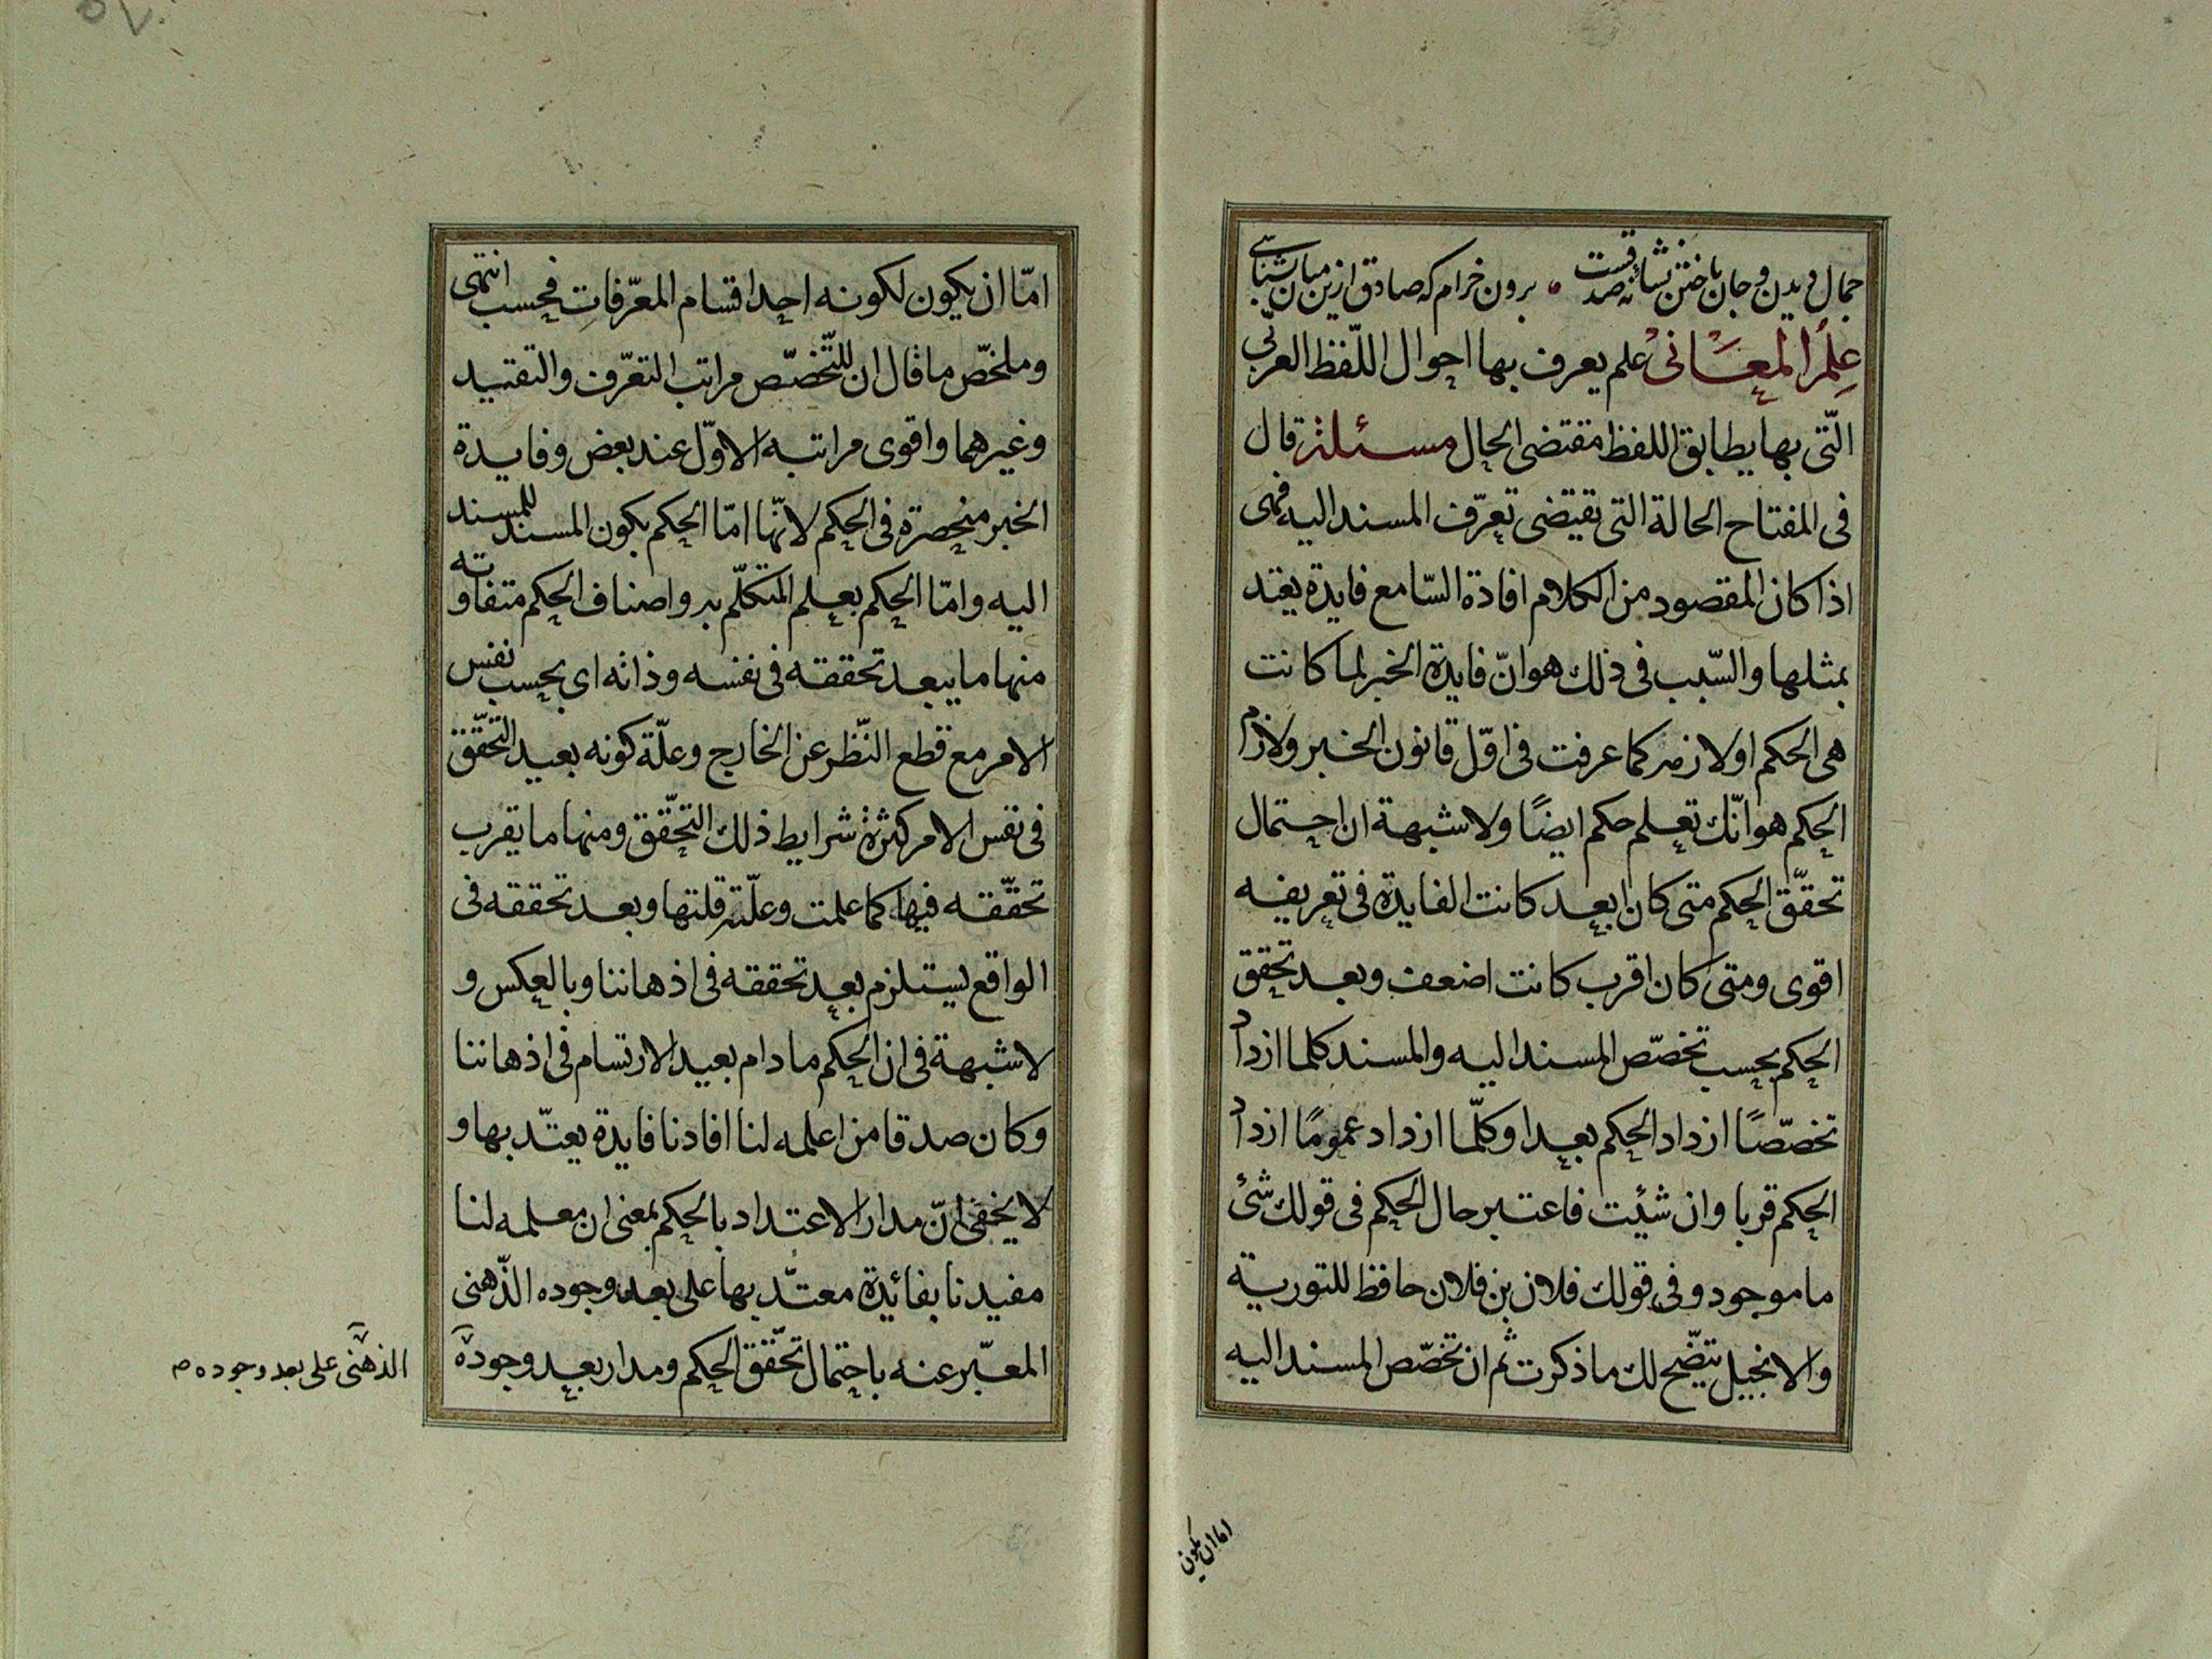 جمال دیدن و جان باختن نشانهٔ صدقست • برون خرام که صادق ازین میان شناسی
علم المعانی علم يعرف بها احوال اللّفظ العربی
الّتی بها يطابق اللفظ مقتضی الحال مسئلة قال
فی المفتاح الحالة التی يقتضی تعرّف المسند اليه فهی
اذا كان المقصود من الكلام افادة السّامع فايدة يعتد
بمثلها والسّبب فی ذلك هو انّ فايدة الخبر لما كانت
هی الحكم او لازمه كما عرفت فی اوّل قانون الخبر ولازم
الحكم هو انّك تعلم حكم ايضًا ولا شبهة ان احتمال
تحقّق الحكم متی كان ابعد كانت الفايدة فی تعريفه
اقوی ومتی كان اقرب كانت اضعف وبعد تحقق
الحكم بحسب تخصّص المسند اليه والمسند كلما ازداد
تخصّصًا ازداد الحكم بعدا وكلّما ازداد عمومًا ازداد
الحكم قربا وان شئت فاعتبر حال الحكم فی قولك شئ
ما موجود وفی قولك فلان بن فلان حافظ للتورية
والانجيل يتضّح لك ما ذكرت ثم ان تخصّص المسند اليه
اما ان يكون
امّا ان يكون لكونه احد اقسام المعرّفات فحسب انتهی
وملخّص ما قال ان للتّخصّص مراتب التعرّف والتقييد
وغيرهما واقوی مراتبه الاوّل عند بعض وفايدة
الخبر منحصرة فی الحكم لانّها امّا الحكم بكون المسند للمسند
اليه وامّا الحكم بعلم المتكلّم به واصناف الحكم متفاوته
منها ما يبعد تحققه فی نفسه وذاته ای بحسب نفس
الامر مع قطع النّظر عن الخارج وعلّة كونه بعيد التحقّق
فی نفس الامر كثرة شرايط ذلك التحقّق ومنها ما يقرب
تحقّقه فيها كما علمت وعلّته قلتها وبعد تحققه فی
الواقع ليستلزم بعد تحققه فی اذهاننا وبالعكس و
لا شبهة فی ان الحكم ما دام بعيد الارتسام فی اذهاننا
وكان صدقا من اعلمه لنا افادنا فايدة يعتدّ بها و
لا يخفی انّ مدار الاعتداد بالحكم بمعنی ان معلمه لنا
مفيدنا بفائيدة معتدّ بها علی بعد وجوده الذّهنی
المعبّر عنه باحتمال تحقّق الحكم ومدار بعد وجوده
الذهنی علی بعد وجوده